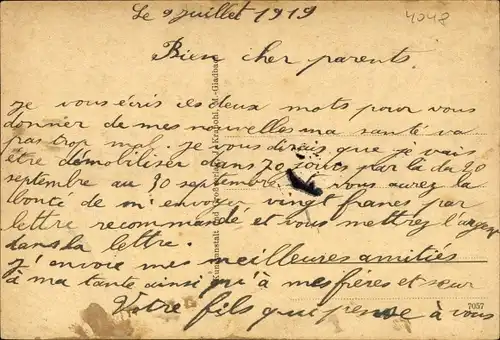 Le 9 juillet 1919
4048
Bien cher parents
je vous écris ces deux mots pour vous
donner de mes nouvelles ma santé va
pas trop mal. je vous dirais que je vais
être démobiliser dans 70 jours par là du 20
septembre au 30 septembre et vous aurez la
bonté de m'envoyer vingt francs par
lettre recommandé et vous mettrez l'argent
dans la lettre.
j'envoie mes meilleures amitiés
à ma tante ainsi qu'à mes frères et sœur
Votre fils qui pense à vous
Kunstanstalt M.-Gladbach
7057